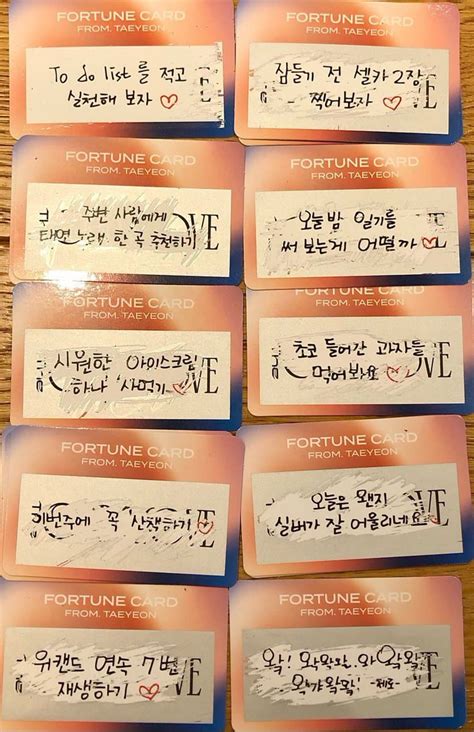 To do list 를 적고
실천해 보자 ♡
FORTUNE CARD
FROM. TAEYEON
잠들기 전 셀카 2장
찍어보자 ♡
FORTUNE CARD
FROM. TAEYEON
주변 사람에게
태연 노래 한 곡 추천하기
FORTUNE CARD
FROM. TAEYEON
오늘 밤 일기를
써 보는게 어떨까 ♡
FORTUNE CARD
FROM. TAEYEON
시원한 아이스크림
하나 사먹기 ♡
FROM. TAEYEON
초코 들어간 과자를
먹어보아요 ♡
FORTUNE CARD
FROM. TAEYEON
이번주에 꼭 산책하기 ♡
FORTUNE CARD
FROM. TAEYEON
오늘은 왠지
실버가 잘 어울리네요
FORTUNE CARD
FROM. TAEYEON
위캔드 연속 7번
재생하기 ♡
FORTUNE CARD
FROM. TAEYEON
-제로-